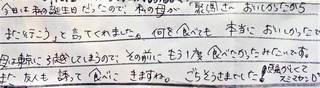 今日は私の誕生日だったので、私の母が おいしかったから
また行こう」と言てくれました。何を食べても 本当においしかったで
母は転に引越してしまうので、その前に もう1度 食べたかったみたいです。
また 友人も 誘って 食べに きますね。 ごちそうさまでした!
スミマセン